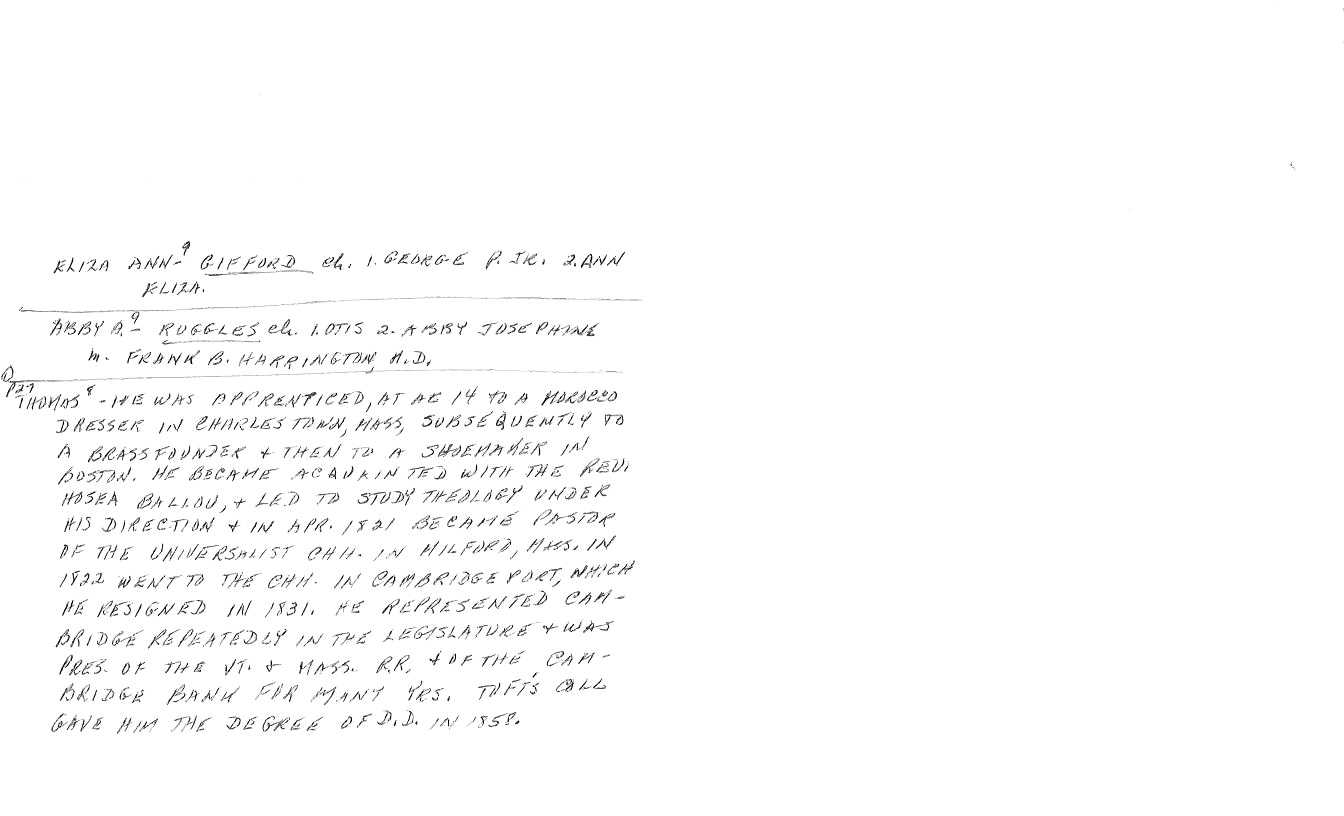 ELIZA ANN-⁹ GIFFORD ch. 1. GEORGE P. JR. 2. ANN
ELIZA.
ABBY A.⁹- RUGGLES ch. 1. OTIS 2. ABBY JOSEPHINE
m. FRANK B. HARRINGTON, M.D.
P27
THOMAS⁸ - HE WAS APPRENTICED, AT AE 14 TO A MOROCCO
DRESSER IN CHARLESTOWN, MASS, SUBSEQUENTLY TO
A BRASSFOUNDER + THEN TO A SHOEMAKER IN
BOSTON. HE BECAME ACQUAINTED WITH THE REV.
HOSEA BALLOU, + LED TO STUDY THEOLOGY UNDER
HIS DIRECTION + IN APR. 1821 BECAME PASTOR
OF THE UNIVERSALIST CHH. IN MILFORD, MASS. IN
1822 WENT TO THE CHH. IN CAMBRIDGE PORT, WHICH
HE RESIGNED IN 1831. HE REPRESENTED CAM-
BRIDGE REPEATEDLY IN THE LEGISLATURE + WAS
PRES. OF THE VT. & MASS. R.R. + OF THE CAM-
BRIDGE BANK FOR MANY YRS. TUFT'S COLL
GAVE HIM THE DEGREE OF D.D. IN 1858.